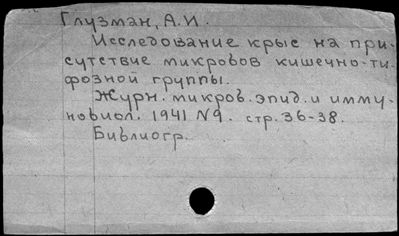 Глузман, А.И.
Исследование крыс на при-
сутствие микробов кишечно-ти-
фозной группы.
Журн. микроб. эпид. и имму-
нобиол. 1941 №9. стр. 36-38.
Библиогр.